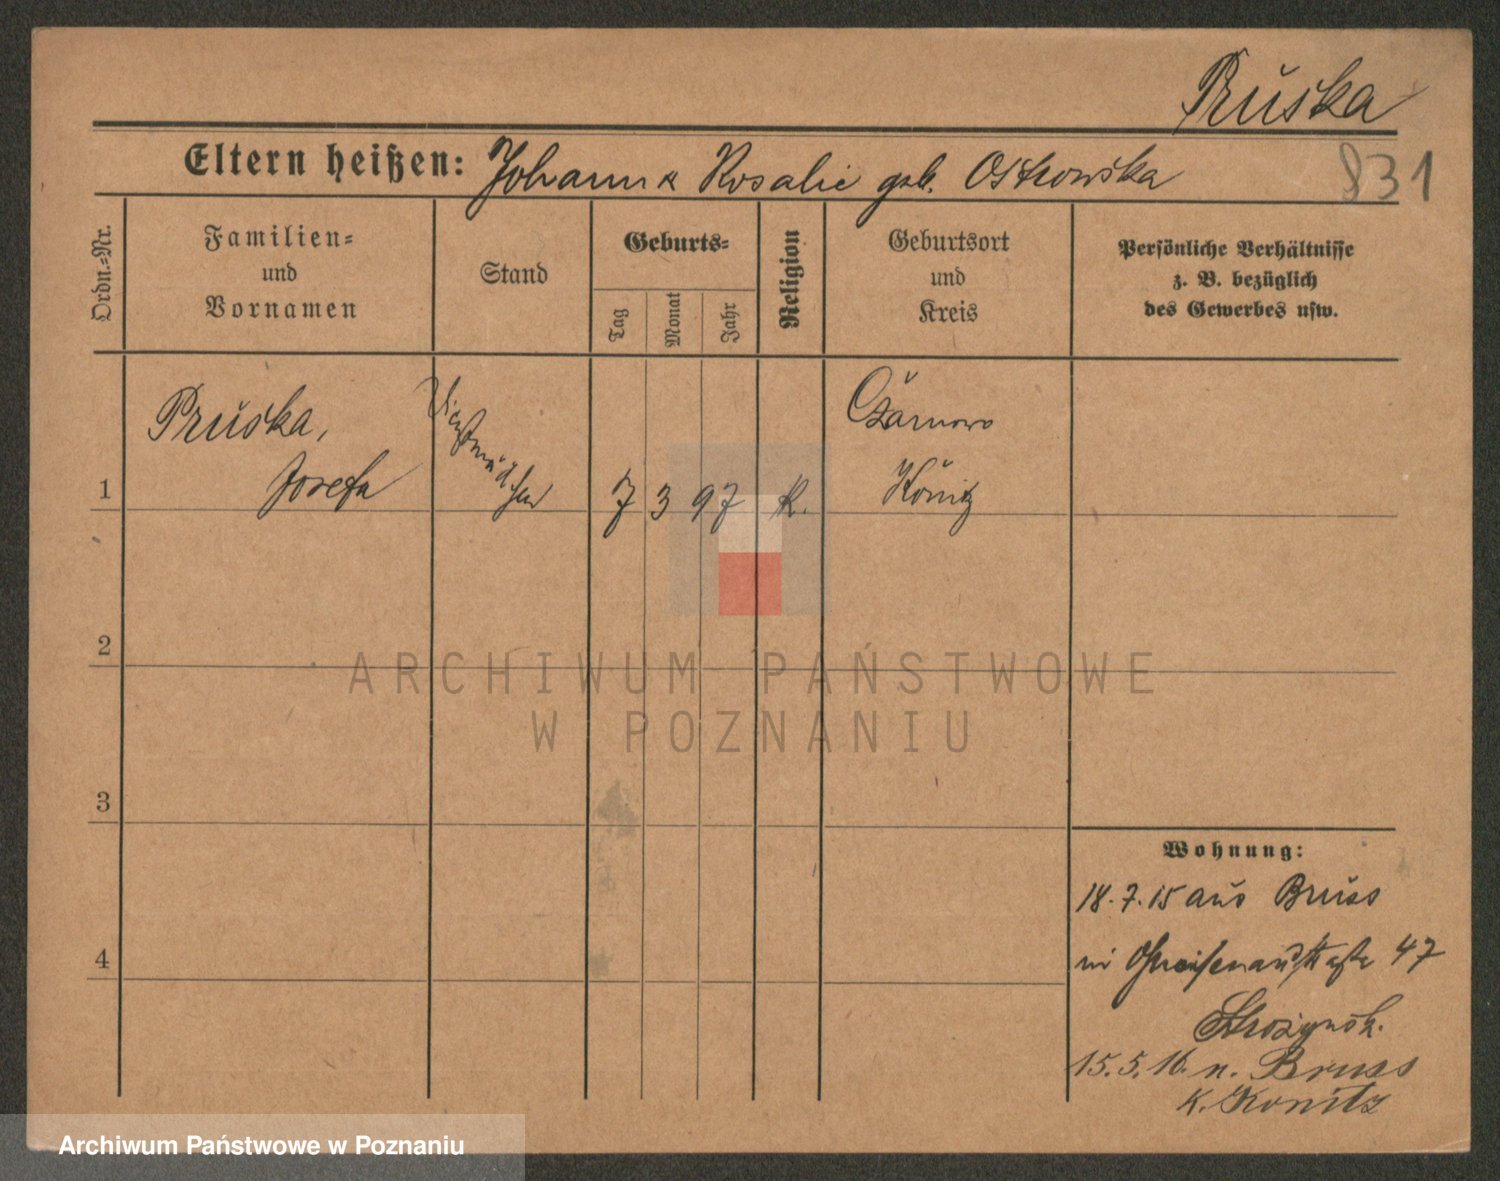 Pruska
Eltern heißen: Johann & Rosalie geb. Ostrowska
831
Ordn.-Nr.
Familien-
und
Vornamen
Stand
Geburts-
Tag
Monat
Jahr
Religion
Geburtsort
und
Kreis
Persönliche Verhältnisse
z. B. bezüglich
des Gewerbes usw.
Pruska,
Josefa
Dienstmädchen
1
7 3 97 k.
Czarnowo
Konitz
2
ARCHIWUM PAŃSTWOWE
W POZNANIU
3
4
Wohnung:
18.7.15 aus Bruss
Gneisenaustraße 47
Strożynsk.
15.5.16. n. Bruss
K. Konitz
Archiwum Państwowe w Poznaniu